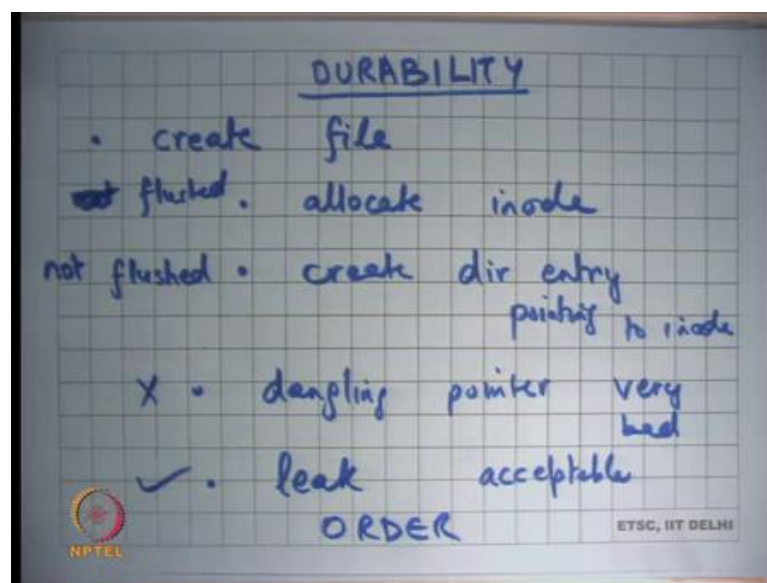 DURABILITY
. create file
flushed . allocate inode
not flushed . create dir entry
pointing to inode
X . dangling pointer very
bad
✓ . leak acceptable
ORDER
NPTEL
ETSC, IIT DELHI